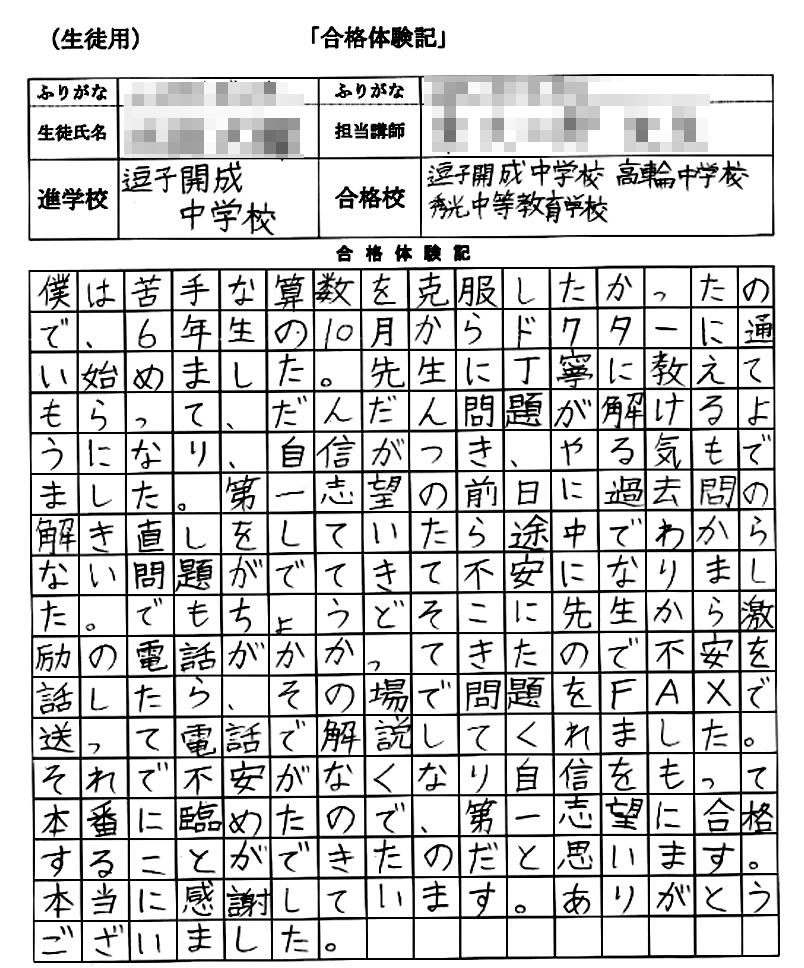 (生徒用) 「合格体験記」
ふりがな ふりがな
生徒氏名 担当講師
進学校 逗子開成中学校 合格校 逗子開成中学校 高輪中学校 秀光中等教育学校
合格体験記
僕は苦手な算数を克服したかったの
で、6年生の10月からドクターに通
い始めました。先生に丁寧に教えて
もらって、だんだん問題が解けるよ
うになり、自信がつき、やる気もで
ました。第一志望の前日に過去問の
解き直しをしていたら途中でわから
ない問題がでてきて不安になりまし
た。でもちょうどそこに先生から激
励の電話がかかってきたので不安を
話したら、その場で問題をFAXで
送って電話で解説してくれました。
それで不安がなくなり自信をもって
本番に臨めたので、第一志望に合格
することができたのだと思います。
本当に感謝しています。ありがとう
ございました。